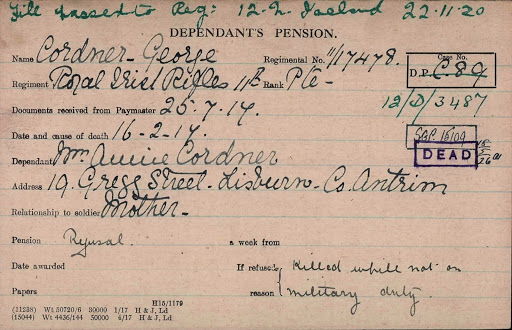 File passed to Reg: 12. Ireland 22.11.20
DEPENDANT'S PENSION.
Name Cordner - George Regimental No. 11/17478.
Case No.
D.P. C.89
Regiment Royal Irish Rifles 11th Rank Pte -
12/D/3487
Documents received from Paymaster 25.7.17.
Date and cause of death 16-2-17.
DEAD
Dependant Mrs Annie Cordner
Address 19. Gregg Street. Lisburn. Co. Antrim
Relationship to soldier Mother -
Pension Refusal. a week from
Date awarded If refused, reason { Killed while not on
Papers military duty.
H15/1179
(11238) Wt 50720/6 30000 1/17 H & J, Ld
(15044) Wt 4436/144 50000 4/17 H & J, Ld